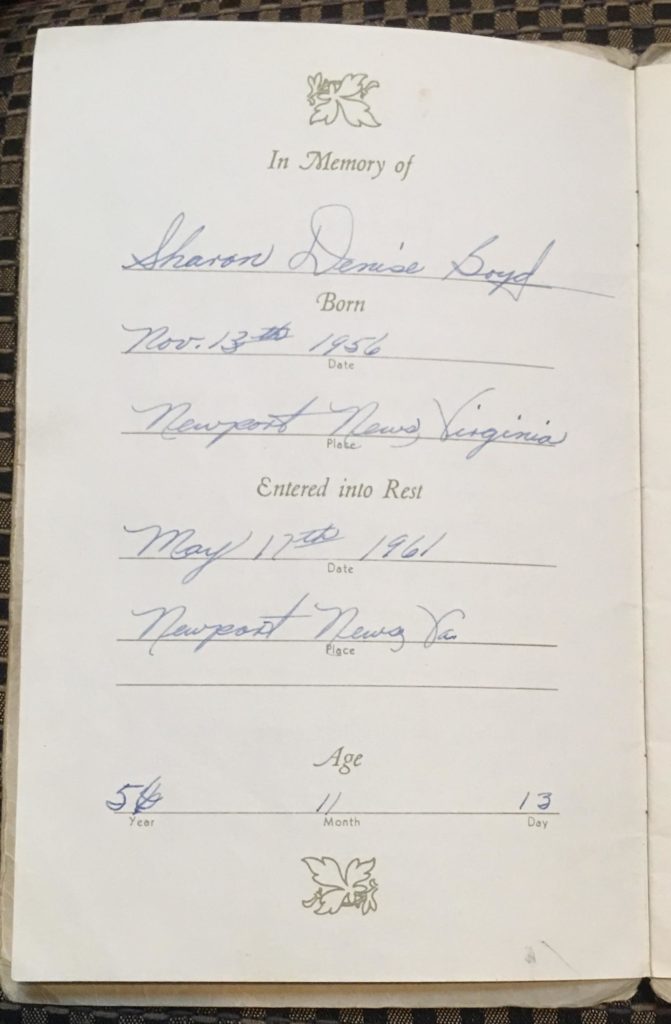 In Memory of
Sharon Denise Boyd
Born
Nov. 13th 1956
Date
Newport News, Virginia
Place
Entered into Rest
May 17th 1961
Date
Newport News, Va.
Place
Age
56 11 13
Year Month Day